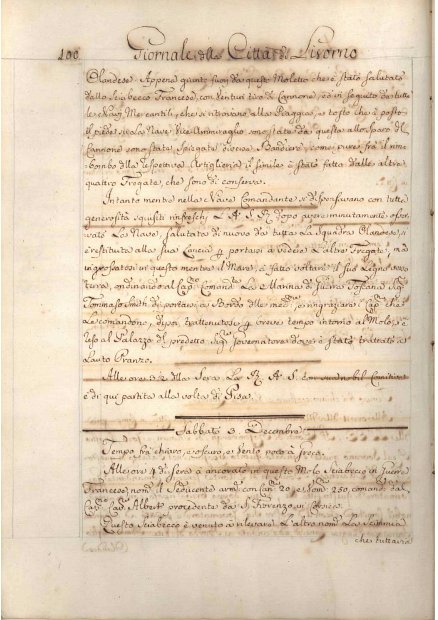 100 Giornale della Città di Livorno
Olandese. Appena giunto fuori di questo Moletto che è stato salutato
dallo Sciabecco Francese, con Venti tiri di Cannone, ed in seguito da tutte
le Navi Mercantili, che si trovano alla Piaggia, e tosto che à posto
il piede su la Nave Vice Ammiraglio sono state da questa allo sparo del
Cannone sono state spiegate diverse Bandiere, come pure frà il rim-
bombo della rispettiva Artiglieria il simile è stato fatto dalle altre
quattro Fregate, che sono di conserva.
Intanto mentre nella Nave Comandante si dispensavano con tutta
generosità squisiti rinfreschi L. A. S. R. dopo avere minutamente osser-
vato La Nave, salutata di nuovo da tutta La Squadra Olandese, si
è restituita alla sua Lancia per portarsi a vedere L'altre Fregate, ma
in questo mentre il Mare, à fatto voltare il suo Legno verso
terra, ordinando al Cap. Comand. La Marina di Guerra Toscana Sig.
Tommaso di portarsi a Bordo delle med. per ringraziare i Cap. che
Le comandono, di poi trattenutosi per breve tempo intorno al Molo, è
sceso al Palazzo del predetto Sig. Governatore dove è stato trattato a
Lauto Pranzo.
Alle ore 3 1/2 della Sera La R. A. S. con sua nobil Comitiva
è di qui partita alla volta di Pisa.
Sabbato 3. Decembre
Tempo frà chiaro, e oscuro, e Vento poco à Greco.
Alle ore 4 di Sera à ancorato in questo Molo Sciabecco in Guerra
Francese, nom. il Seducente arm. con Can. 20, e Uom. 230, comand. dal
Cap. Cav. Albert procedente da S. Fiorenzo in Corsica.
Questo Sciabecco è venuto à rilevare L'altro nom. La
che tuttavia